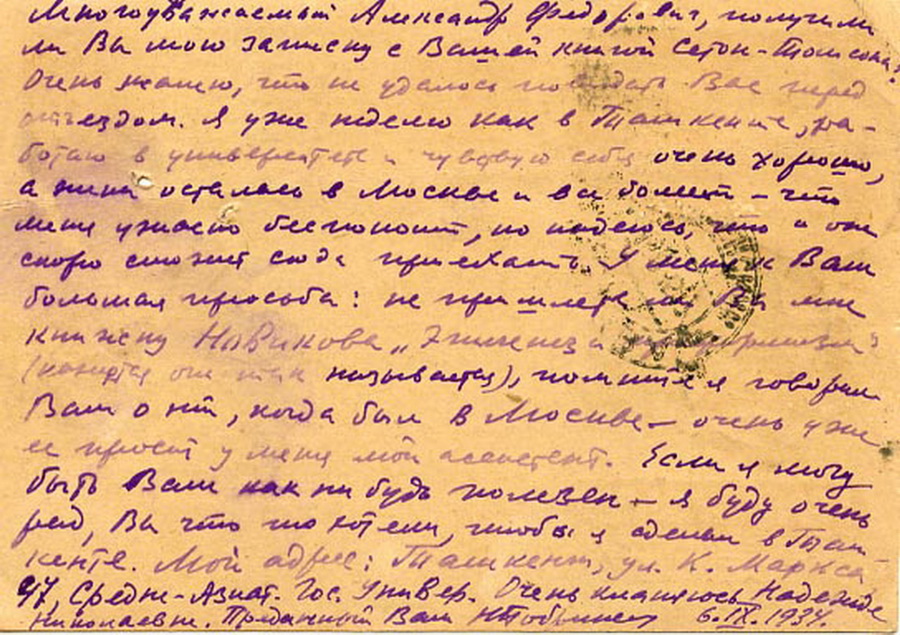 Многоуважаемый Александр Федорович, получили
ли Вы мою записку с Вашей книгой Сетон-Томсона?
Очень жалею, что не удалось повидать Вас перед
отъездом. Я уже неделю как в Ташкенте, ра-
ботаю в университете и чувствую себя очень хорошо,
а жена осталась в Москве и болеет – что
меня ужасно беспокоит, но надеюсь, что и она
скоро сможет сюда приехать. У меня к Вам
большая просьба: не пришлете ли Вы мне
книжку Новикова „Эпигенез и
(кажется она так называется), помните я говорил
Вам о ней, когда был в Москве – очень уже
ее просит у меня мой ассистент. Если я могу
быть Вам как нибудь полезен – я буду очень
рад, Вы что то хотели, чтобы я сделал в Таш
кенте. Мой адрес: Ташкент, ул. К. Маркса
47, Средне-Азиат. Гос. Универ. Очень кланяюсь Надежде
Николаевне. Преданный Вам 6.IX.1934.